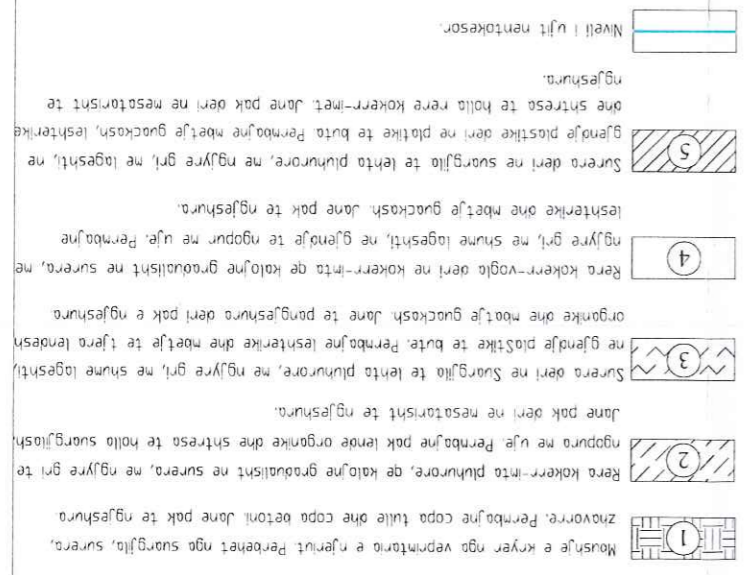 1
Mbushje e kryer nga veprimtaria e njeriut. Perbehet nga suargjila, surera,
zhavorre. Permbajne copa tulle dhe copa betoni. Jane pak te ngjeshura
2
Rera kokerr-imta pluhurore, qe kalojne gradualisht ne surera, me ngjyre gri te
ngopura me uje. Permbajne pak lende organike dhe shtresa te holla suargjilash.
Jane pak deri ne mesatarisht te ngjeshura.
3
Surera deri ne Suargjila te lehta pluhurore, me ngjyre gri, me shume lageshti,
ne gjendje plastike te bute. Permbajne leshterike dhe mbetje te tjera lendesh
organike dhe mbetje guackash. Jane te pangjeshura deri pak e ngjeshura
4
Rera kokerr-vogla deri ne kokerr-imta qe kalojne gradualisht ne surera, me
ngjyre gri, me shume lageshti, ne gjendje te ngopur me uje. Permbajne
leshterike dhe mbetje guackash. Jane pak te ngjeshura.
5
Surera deri ne suargjila te lehta pluhurore, me ngjyre gri, me lageshti, ne
gjendje plastike deri ne platike te buta. Permbajne mbetje guackash, leshterike
dhe shtresa te holla rere kokerr-imet. Jane pak deri ne mesatarisht te
ngjeshura.
Niveli i ujit nentokesor.